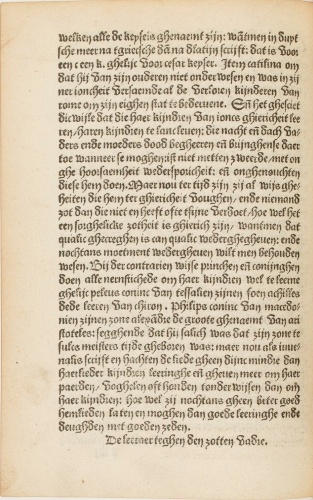 welken alle de keysers ghenaemt zijn: wãtmen in duyt
sche meer na tgriecsche dã na dlatijn scrijft: dat is voor
een c een k. ghelijc voor cesar keyser. Item catilina om
dat hij van zijn ouderen niet onderwesen en was in zij
ner ioncheit versaemde al de verloren kijnderen van
rome om zijn eighen stat te bederuene. Eñ het ghesciet
dicwijle dat die haer kijndren van ioncs ghiericheit lee
ren/ haren kijndren te lanc leuen: die nacht eñ dach va
ders ende moeders dood begheeren eñ bijnghense daer
toe wanneer se moghen: ist niet metten zweerde/ met on
ghe hoorsaemheit wedersporicheit: eñ onghenouchten
diese hem doen. Maer nou ter tijd zijn zij al wijs ghe
heiten die hem ter ghiericheit voughen/ ende niemand
zot dan die niet en heeft ofte tsijne verdoet/ hoe wel het
een sorghelicke zotheit is ghierich zijn/ wantmen dat
qualic ghecreghen is can qualic wederghegheuen: ende
nochtans moetment wedergheuen wilt men behouden
wesen. Bij der contrarien wijse princhen eñ conijnghen
doen alle neernstichede om haer kijndren wel te leerne
ghelijc peleus coninc van tessalien zijnen soen achilles
dede leeren van chiron. Philips coninc van macedo-
nien zijnen zone alexãdre de groote ghenaemt van ari
stoteles: segghende dat hij salich was dat zijn zone te
sulcs meisters tijde gheboren was: maer nou als iuue-
nalis scrijft en hachten de liede gheen dijnc mindre dan
haerlieder kijndren leeringhe eñ gheuen meer om haer
paerden/ voghelen oft honden tonderwijsen dan om
haer kijndren: hoe wel zij nochtans gheen beter goed
hemlieden laten en moghen dan goede leeringhe ende
deughden met goeden zeden.
De leeraer teghen den zotten vadre.